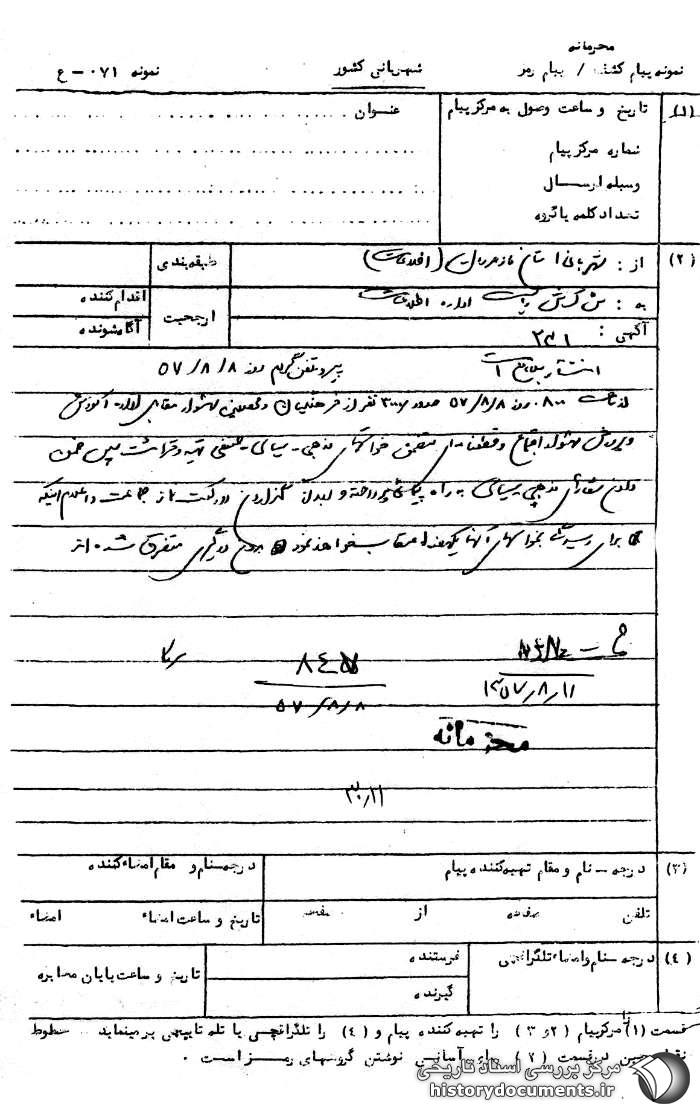 محرمانه
نمونه پیام کشف / پیام رمز شهربانی کشور نمونه ۰۷۱ - ع
(۱) تاریخ و ساعت وصول به مرکز پیام عنوان
شماره مرکز پیام
وسیله ارسال
تعداد کلمه یا گروه
(۲) از : شهربانی استان مازندران (اطلاعات) طبقه بندی
به : اداره اطلاعات ارجحیت اقدام کننده
آگهی : ۲۳۱ آگاه شونده
پیرو تلفنگرام روز ۵۷/۸/۸
از ساعت ۸۰۰ روز ۵۷/۸/۸ حدود ۳۰۰۰ نفر از فرهنگیان و محصلین مقابل اداره آموزش
و پرورش اجتماع و قطعنامه ای متضمن خواسته های مذهبی - سیاسی - صنفی تهیه و قرائت سپس ضمن
دادن شعارهای مذهبی - سیاسی به راه پیمائی پرداخته و بعد از گزاردن دو رکعت نماز جماعت و اعلام اینکه
برای رسیدگی بخواسته های آنها یکهفته اعتصاب خواهند نمود بدون درگیری متفرق شده اند
۸۴۵
۵۷/۸/۸
۱۳۵۷/۸/۱۱
محرمانه
(۳) درجه - نام و مقام تهیه کننده پیام درجه - نام و مقام امضاء کننده
تلفن صفحه از صفحه تاریخ و ساعت امضاء امضاء
(۴) درجه - نام و امضاء تلگرافچی فرستنده تاریخ و ساعت پایان مخابره
گیرنده
قسمت (۱) مرکز پیام (۲ و ۳) را تهیه کننده پیام و (۴) را تلگرافچی یا تله تایپچی پر مینماید خطوط
نقطه چین در قسمت (۲) برای آسانی نوشتن گروههای رمز است .
مرکز بررسی اسناد تاریخی
historydocuments.ir